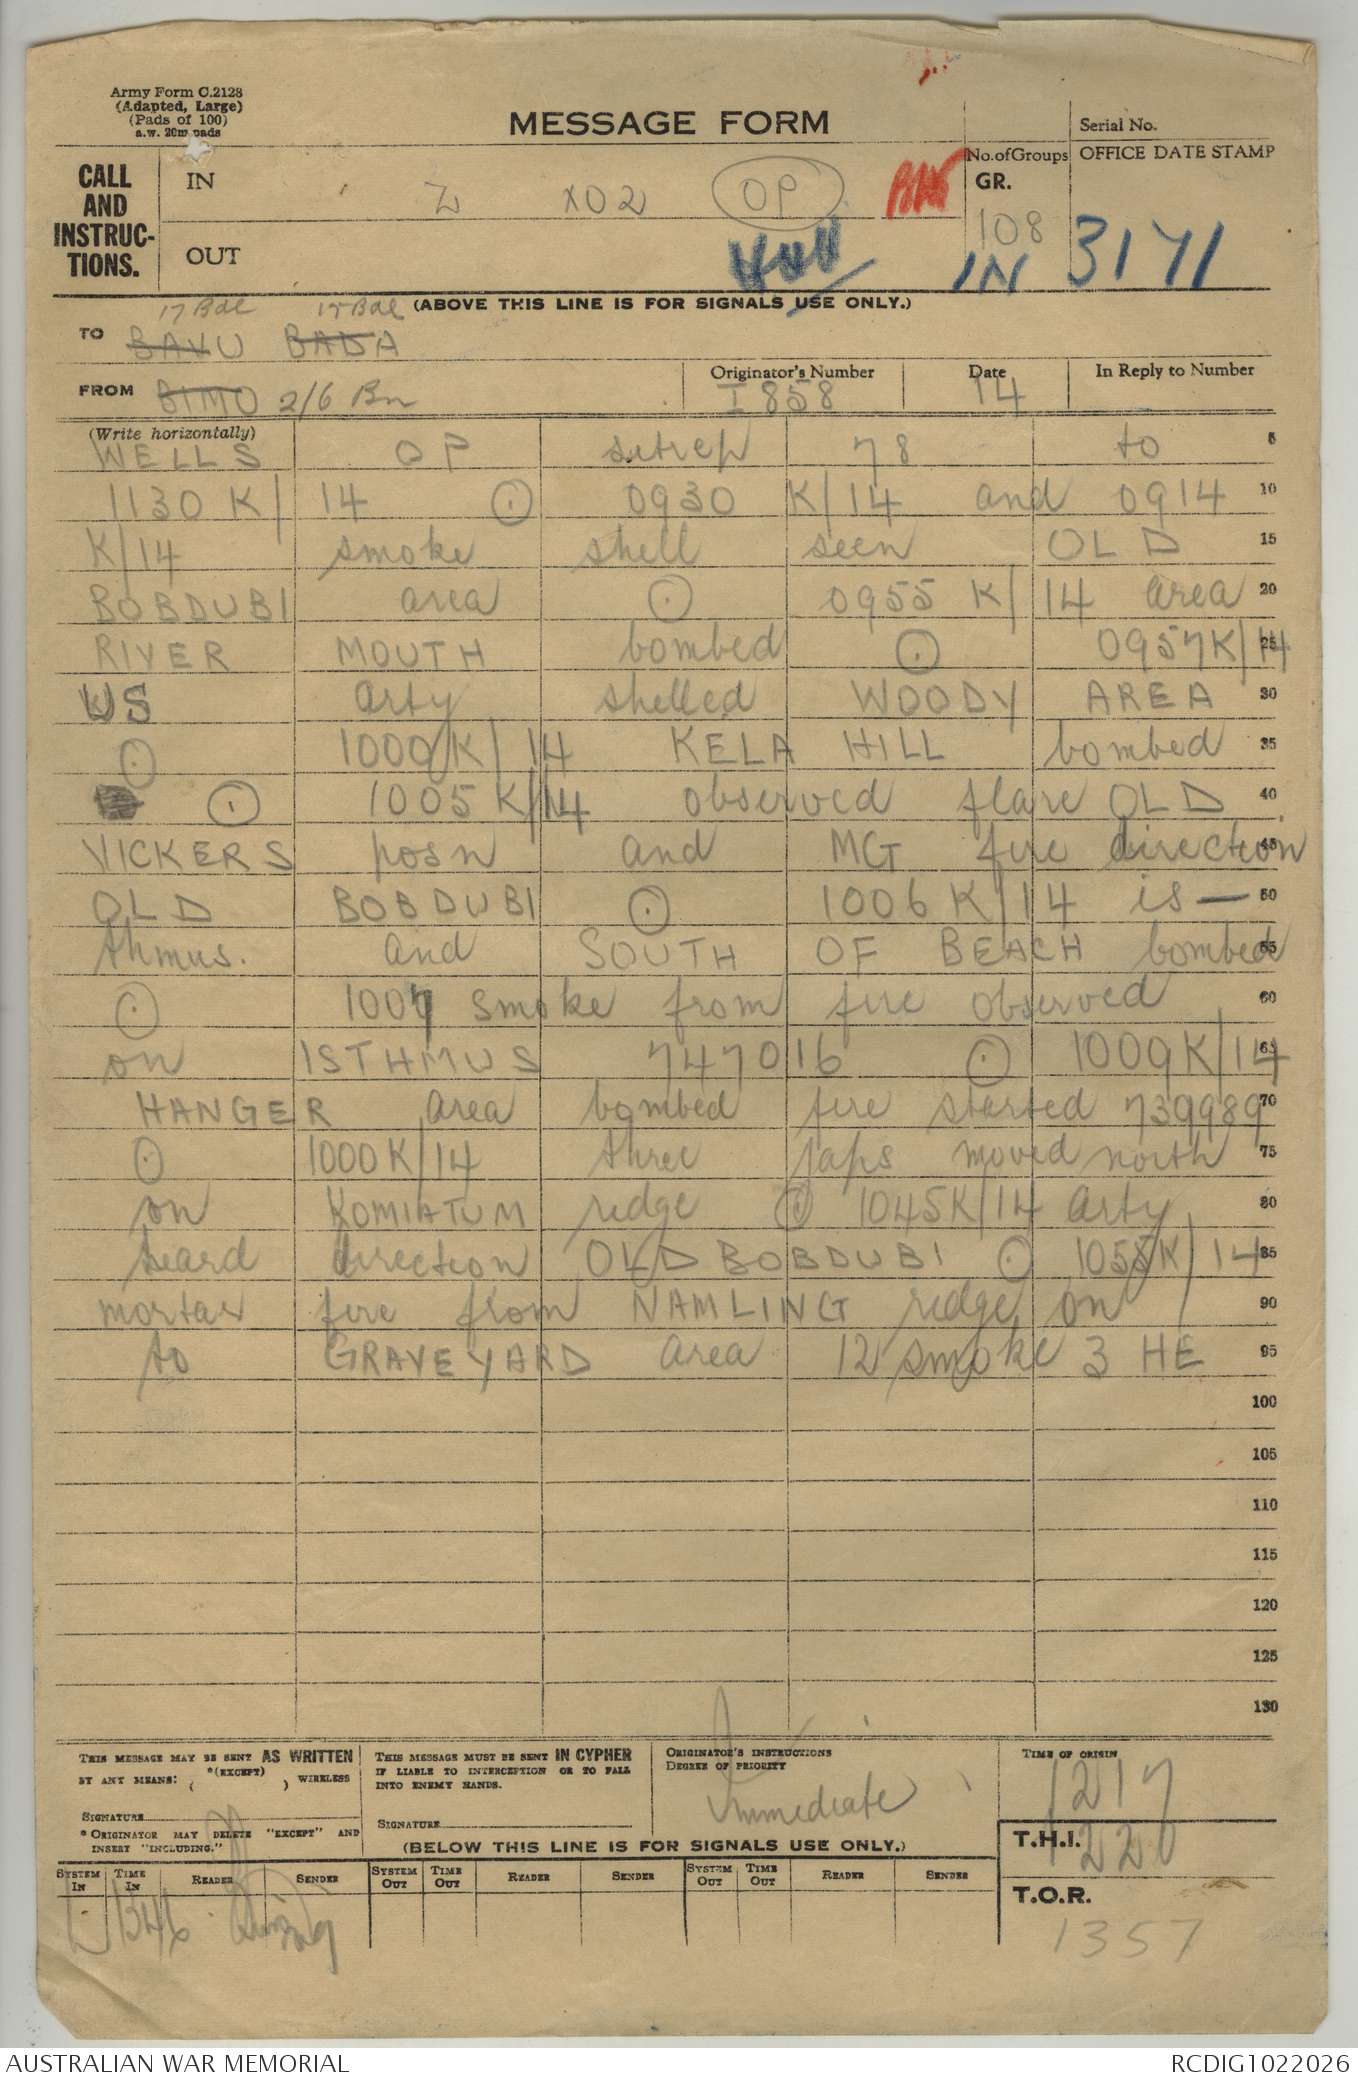 Army Form C.2128
(Adapted, Large)
(Pads of 100)
a.w. 20m pads
MESSAGE FORM
Serial No.
CALL AND INSTRUC-TIONS.
IN
Z XO2 OP
No. of Groups
GR.
108
OFFICE DATE STAMP
OUT
IN 3171
(ABOVE THIS LINE IS FOR SIGNALS USE ONLY.)
17 Bde 15 Bde
TO BAVU BADA
Originator's Number
Date
In Reply to Number
FROM BIMO 2/6 Bn
I 858
14
(Write horizontally)
WELLS OP sitrep 78 to 5
1130 K/14 ⊙ 0930 K/14 and 0914 10
K/14 smoke shell seen OLD 15
BOBDUBI area ⊙ 0955 K/14 area 20
RIVER MOUTH bombed ⊙ 0957K/14 25
US arty shelled WOODY AREA 30
⊙ 1000K/14 KELA HILL bombed 35
⊙ 1005 K/14 observed flare OLD 40
VICKERS posn and MG fire direction 45
OLD BOBDUBI ⊙ 1006 K/14 is— 50
thmus. and SOUTH OF BEACH bombed 55
⊙ 1007 smoke from fire observed 60
on ISTHMUS 747016 ⊙ 1009K/14 65
HANGER area bombed fire started 739989 70
⊙ 1000K/14 three japs moved north 75
on KOMIATUM ridge ⊙ 1045K/14 arty 80
heard direction OLD BOBDUBI ⊙ 1055K/14 85
mortar fire from NAMLING ridge on 90
to GRAVEYARD area 12 smoke 3 HE 95
100
105
110
115
120
125
130
THIS MESSAGE MAY BE SENT AS WRITTEN
BY ANY MEANS: *(EXCEPT) ( ) WIRELESS
SIGNATURE
* ORIGINATOR MAY DELETE "EXCEPT" AND
INSERT "INCLUDING."
THIS MESSAGE MUST BE SENT IN CYPHER
IF LIABLE TO INTERCEPTION OR TO FALL
INTO ENEMY HANDS.
SIGNATURE
ORIGINATOR'S INSTRUCTIONS
DEGREE OF PRIORITY
Immediate
TIME OF ORIGIN
1217
(BELOW THIS LINE IS FOR SIGNALS USE ONLY.)
T.H.I.
1220
SYSTEM IN TIME IN READER SENDER SYSTEM OUT TIME OUT READER SENDER SYSTEM OUT TIME OUT READER SENDER
1346
T.O.R.
1357
AUSTRALIAN WAR MEMORIAL
RCDIG1022026